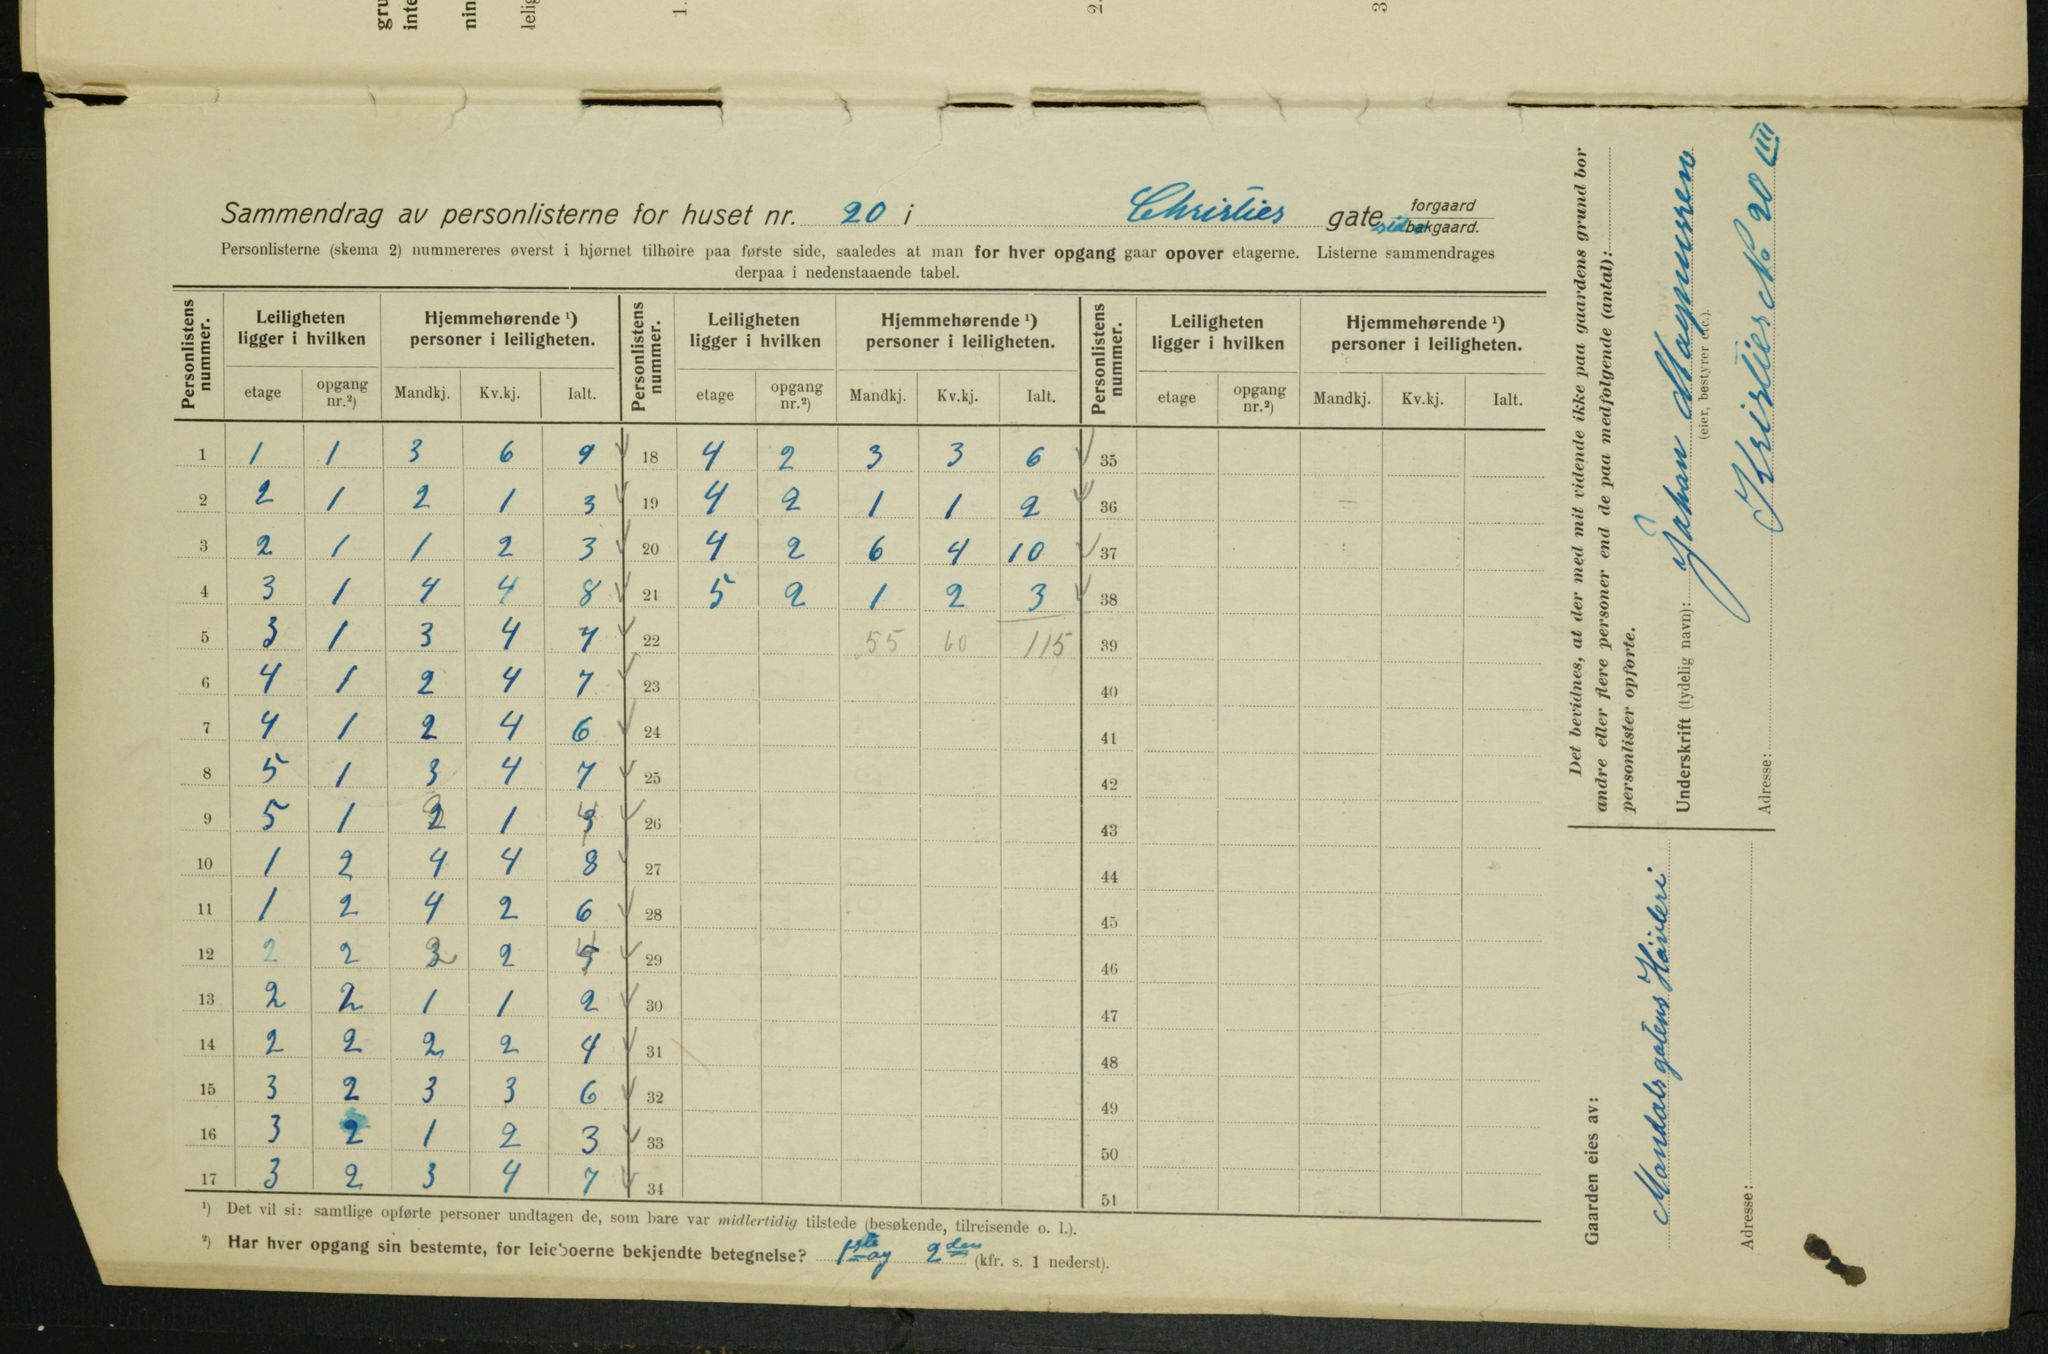 Sammendrag av personlisterne for huset nr. 20 i Christies gate forgaard
side bakgaard.
Personlisterne (skema 2) nummereres øverst i hjørnet tilhøire paa første side, saaledes at man for hver opgang gaar opover etagerne. Listerne sammendrages
derpaa i nedenstaaende tabel.
Personlistens nummer. Leiligheten ligger i hvilken Hjemmehørende ¹) personer i leiligheten. Personlistens nummer. Leiligheten ligger i hvilken Hjemmehørende ¹) personer i leiligheten. Personlistens nummer. Leiligheten ligger i hvilken Hjemmehørende ¹) personer i leiligheten.
etage opgang nr.²) Mandkj. Kv.kj. Ialt. etage opgang nr.²) Mandkj. Kv.kj. Ialt. etage opgang nr.²) Mandkj. Kv.kj. Ialt.
1 1 1 3 6 9 18 4 2 3 3 6 35
2 2 1 2 1 3 19 4 2 1 1 2 36
3 2 1 1 2 3 20 4 2 6 4 10 37
4 3 1 4 4 8 21 5 2 1 2 3 38
5 3 1 3 4 7 22 55 60 115 39
6 4 1 2 4 7 23 40
7 4 1 2 4 6 24 41
8 5 1 3 4 7 25 42
9 5 1 1 26 43
10 1 2 4 4 8 27 44
11 1 2 4 2 6 28 45
12 2 2 2 29 46
13 2 2 1 1 2 30 47
14 2 2 2 2 4 31 48
15 3 2 3 3 6 32 49
16 3 2 1 2 3 33 50
17 3 2 3 4 7 34 51
¹) Det vil si: samtlige opførte personer undtagen de, som bare var midlertidig tilstede (besøkende, tilreisende o. l.).
²) Har hver opgang sin bestemte, for leieboerne bekjendte betegnelse? 1ste og 2den (kfr. s. 1 nederst).
Det bevidnes, at der med mit vidende ikke paa gaardens grund bor
andre eller flere personer end de paa medfølgende (antal):
personlister opførte.
Underskrift (tydelig navn): Johan Magnussen
(eier, bestyrer etc.).
Adresse: Kristies No 20 III
Gaarden eies av:
Mandalsgatens Høvleri
Adresse:
gru
inte
nin
leilig
1.
2.
3